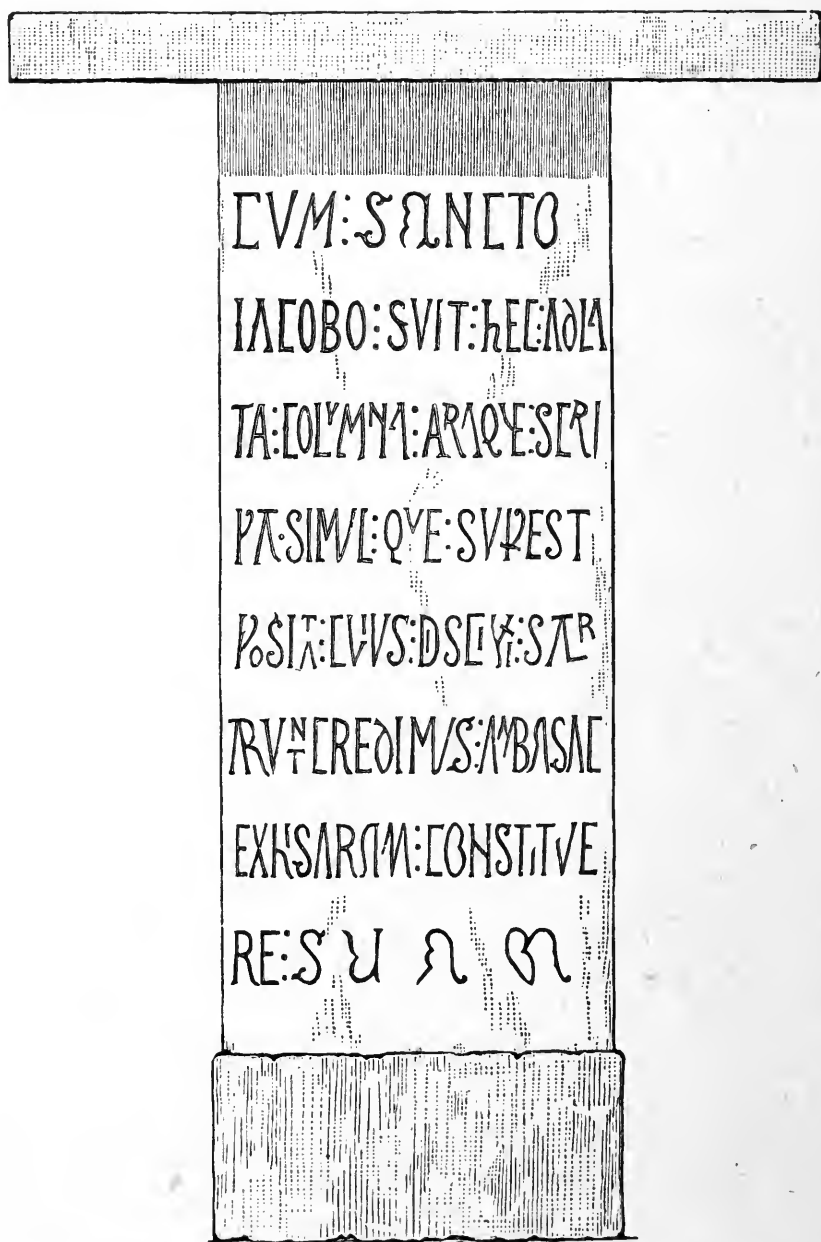 CVM : SANCTO
IACOBO : SVIT : hEC : ADLA
TA : COLVMNA : ARAQVE : SCRI
PTA · SIMVL : QVE : SVPEST
POSITA : CVIVS : DSCI
TRVNT CREDIMVS : AMBAS AC
EX HIS ARAM : CONSTITVE
RE : SUAM